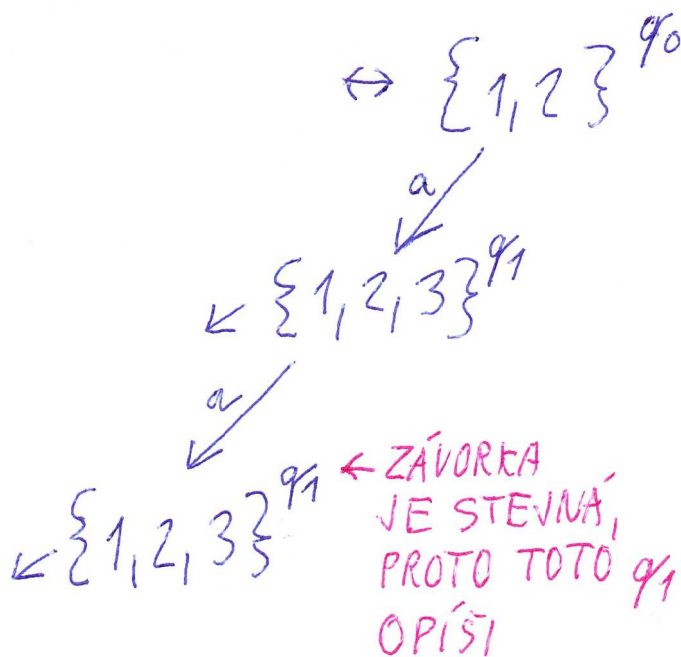 ↔ {1, 2} q0
a
← {1, 2, 3} q1
a
← {1, 2, 3} q1
← ZÁVORKA
JE STEJNÁ,
PROTO TOTO q1
OPÍŠI